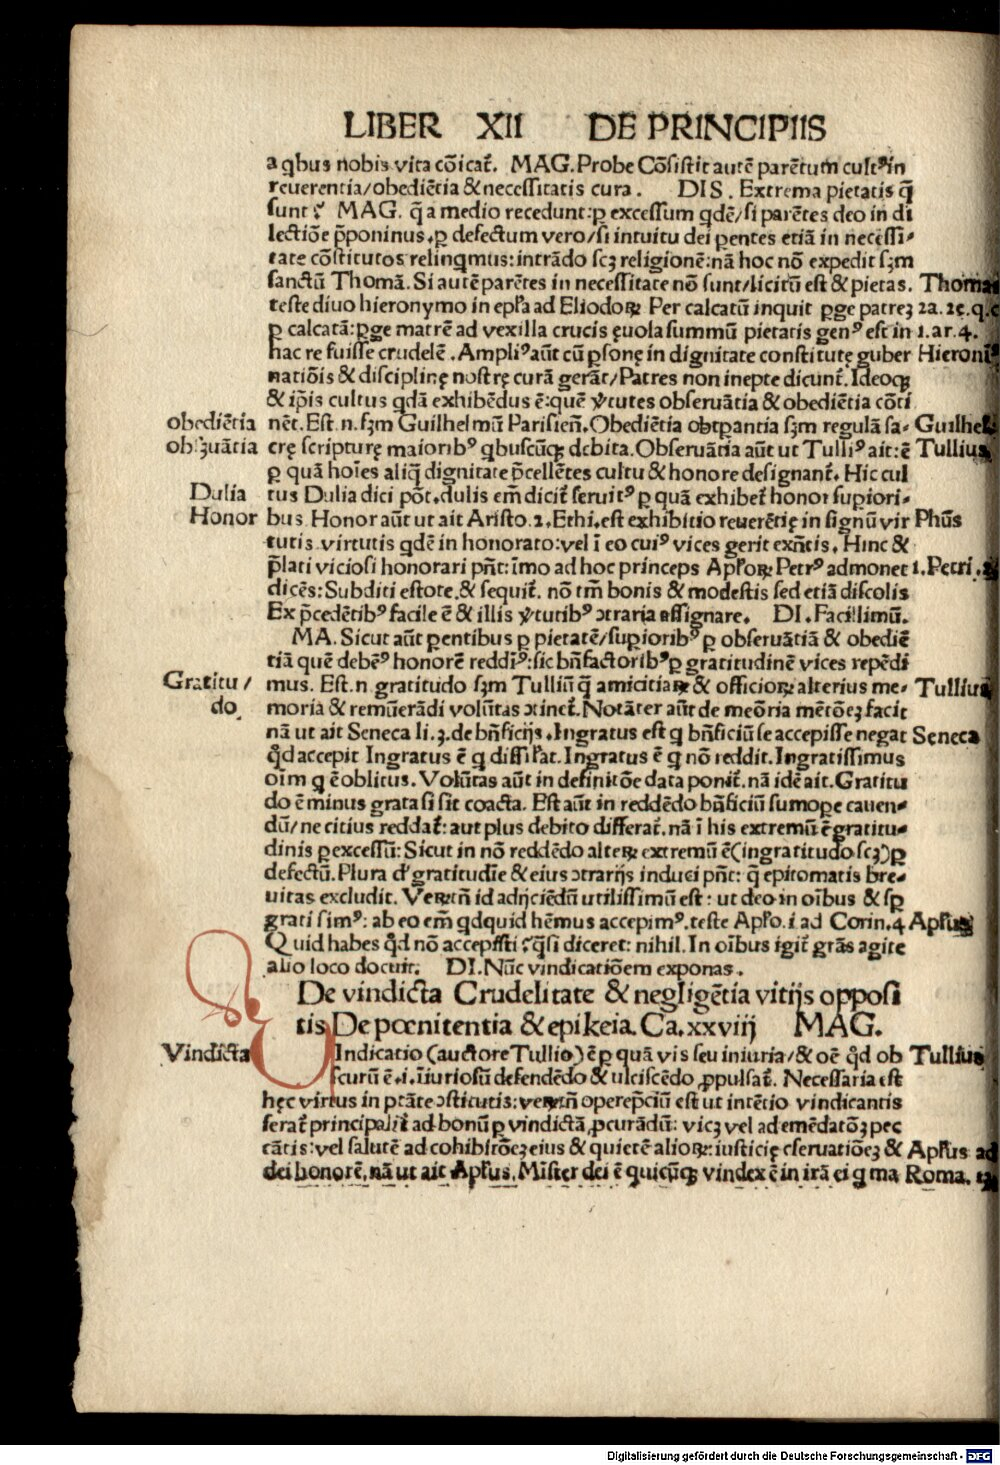 LIBER XII DE PRINCIPIIS
a qbus nobis vita cõicat᷑. MAG. Probe Cõsistit autẽ parẽtum cultꝰ in
reuerentia/obediẽtia & necessitatis cura. DIS. Extrema pietatis q̃
sunt? MAG. q̃ a medio recedunt: ꝑ excessum qdẽ/si parẽtes deo in di
lectiõe p̃ponimus, ꝑ defectum vero/si intuitu dei ꝑentes etiã in necessi-
tate cõstitutos relinqmus: intrãdo scꝫ religionẽ: nã hoc nõ expedit sꝫm
sanctũ Thomã. Si autẽ parẽtes in necessitate nõ sunt/licitũ est & pietas. Thomas
teste diuo hieronymo in epľa ad Eliodoꝝ Per calcatũ inquit ꝑge patreꝫ 2a. 2ę. q.
ꝑ calcatã: ꝑge matrẽ ad vexilla crucis ęuola summũ pietatis genꝰ est in 1. ar. 4.
hac re fuisse crudelẽ. Ampliꝰ aũt cũ ꝑsonę in dignitate constitutę guber Hieroniꝰ
natiõis & disciplinę nostrę curã gerãt/Patres non inepte dicunt᷑. Ideoqꝫ
& ip̃is cultus qdã exhibẽdus ẽ: quẽ ꝟtutes obseruãtia & obediẽtia cõti
obediẽtia nẽt. Est. n. sꝫm Guilhelmũ Parisieñ. Obediẽtia obtꝑantia sꝫm regulã sa- Guilhel
obꝫuãtia crę scripturę maioribꝰ qbuscũqꝫ debita. Obseruãtia aũt ut Tulliꝰ ait: ẽ Tullius
ꝑ quã hoĩes aliq̃ dignitate p̃cellẽtes cultu & honore designant᷑. Hic cul
Dulia tus Dulia dici põt, dulis em̃ dicit᷑ seruitꝰ ꝑ quã exhibet᷑ honor suꝑiori-
Honor bus. Honor aũt ut ait Aristo. 1. Ethi. est exhibitio reuerẽtię in signũ vir Phũs
tutis virtutis qdẽ in honorato: vel ĩ eo cuiꝰ vices gerit exñtis. Hinc &
p̃lati viciosi honorari pñt: ĩmo ad hoc princeps Apľoꝝ Petrꝰ admonet 1. Petri.
dicẽs: Subditi estote, & sequit᷑. nõ tm̃ bonis & modestis sed etiã discolis
Ex p̃cedẽtibꝰ facile ẽ & illis ꝟtutibꝰ ↄtraria assignare. DI. Facillimũ.
MA. Sicut aũt ꝑentibus ꝑ pietatẽ/suꝑioribꝰ ꝑ obseruãtiã & obediẽ
tiã quẽ debẽꝰ honorẽ reddĩꝰ: sic bñfactoribꝰ ꝑ gratitudinẽ vices repẽdi
Gratitu/ mus. Est. n gratitudo sꝫm Tulliũ q̃ amicitiaꝝ & officioꝝ alterius me- Tullius
do. moria & remũerãdi volũtas ↄtinet᷑. Notãter aũt de meõria mẽtõeꝫ facit
nã ut ait Seneca li. 3. de bñficijs. Ingratus est q bñficiũ se accepisse negat Seneca
qd̃ accepit Ingratus ẽ q dissiľat. Ingratus ẽ q nõ reddit. Ingratissimus
oĩm q ẽ oblitus. Volũtas aũt in definitõe data ponit᷑. nã idẽ ait. Gratitu
do ẽ minus grata si sit coacta. Est aũt in reddẽdo bñficiũ sumope cauen-
dũ/ne citius reddat᷑: aut plus debito differat᷑. nã ĩ his extremũ ẽ gratitu-
dinis ꝑ excessũ: Sicut in nõ reddẽdo alteꝝ extremũ ẽ (ingratitudo scꝫ) ꝑ
defectũ. Plura d' gratitudĩe & eius ↄtrarijs induci pñt: q̃ epitomatis bre-
uitas excludit. Veꝝtñ id adijciẽdũ utilissimũ est: ut deo in oĩbus & sꝑ
grati simꝰ: ab eo em̃ qdquid hẽmus accepimꝰ. teste Apľo. i. ad Corin. 4 Apľus
Quid habes qd̃ nõ accepisti? q̃si diceret: nihil. In oĩbus igit᷑ grãs agite
alio loco docuit. DI. Nũc vindicatiõem exponas.
De vindicta Crudelitate & negligẽtia vitijs opposi
tis De pœnitentia & epikeia. Ca. xxviij MAG.
Vindicta Vindicatio (auctore Tullio) ẽ ꝑ quã vis seu iniuria/& oẽ qd̃ ob Tullius
scurũ ẽ. i. ĩiuriosũ defendẽdo & ulciscẽdo ꝓpulsat᷑. Necessaria est
hęc virtus in ptãte ↄstitutis: veꝝtñ operep̃ciũ est ut intẽtio vindicantis
ferat᷑ principalit᷑ ad bonũ ꝑ vindictã ꝓcurãdũ: vicꝫ vel ad emẽdatõꝫ pec
cãtis: vel salutẽ ad cohibitõeꝫ eius & quietẽ alioꝝ: iusticię cseruatiõeꝫ & Apľus ad
dei honorẽ, nã ut ait Apľus. Mĩster dei ẽ quicũqꝫ vindex ẽ in irã ei q ma Roma.
Digitalisierung gefördert durch die Deutsche Forschungsgemeinschaft - DFG